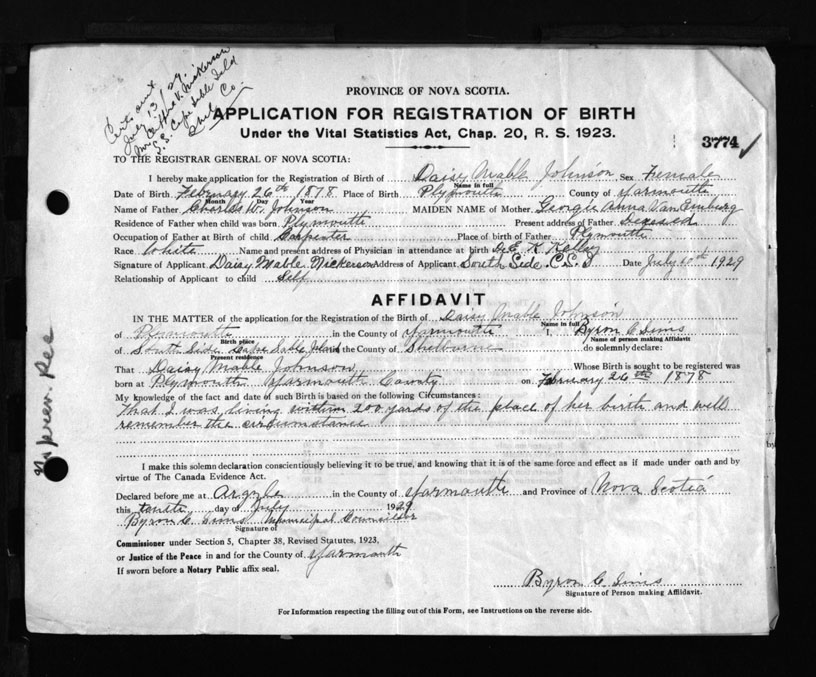 Certs. sent
July 13/29
Mrs. V. Nickerson
S.S. Cape Sable Isld
Shel. Co.
PROVINCE OF NOVA SCOTIA.
APPLICATION FOR REGISTRATION OF BIRTH
Under the Vital Statistics Act, Chap. 20, R. S. 1923.
3774
TO THE REGISTRAR GENERAL OF NOVA SCOTIA:
I hereby make application for the Registration of Birth of Daisy Mable Johnson Sex Female
Name in full
Date of Birth February 26th 1878 Place of Birth Plymouth County of Yarmouth
Month Day Year
Name of Father Charles W. Johnson MAIDEN NAME of Mother Georgie Anna Van Emburg
Residence of Father when child was born Plymouth Present address of Father Deceased
Occupation of Father at Birth of child Carpenter Place of birth of Father Plymouth
Race White Name and present address of Physician in attendance at birth K. Kelley
Signature of Applicant Daisy Mable Nickerson Address of Applicant South Side C.S.I Date July 10th 1929
Relationship of Applicant to child Self
AFFIDAVIT
IN THE MATTER of the application for the Registration of the Birth of Daisy Mable Johnson
Name in full
of Plymouth in the County of Yarmouth I, Byron C Sims
Birth place Name of person making Affidavit
of South Side Cape Sable Island in the County of Shelburne do solemnly declare:
Present residence
That Daisy Mable Johnson Whose Birth is sought to be registered was
born at Plymouth Yarmouth County on February 26th 1878
My knowledge of the fact and date of such Birth is based on the following Circumstances:
that I was living within 200 yards of the place of her birth and well
remember the circumstance
I make this solemn declaration conscientiously believing it to be true, and knowing that it is of the same force and effect as if made under oath and by
virtue of The Canada Evidence Act.
Declared before me at Argyle in the County of Yarmouth and Province of Nova Scotia
this tenth day of July 1929
Byron C. Sims Municipal Councillor
Signature of
Commissioner under Section 5, Chapter 38, Revised Statutes, 1923,
or Justice of the Peace in and for the County of Yarmouth
If sworn before a Notary Public affix seal.
Byron C. Sims
Signature of Person making Affidavit.
For Information respecting the filling out of this Form, see Instructions on the reverse side.